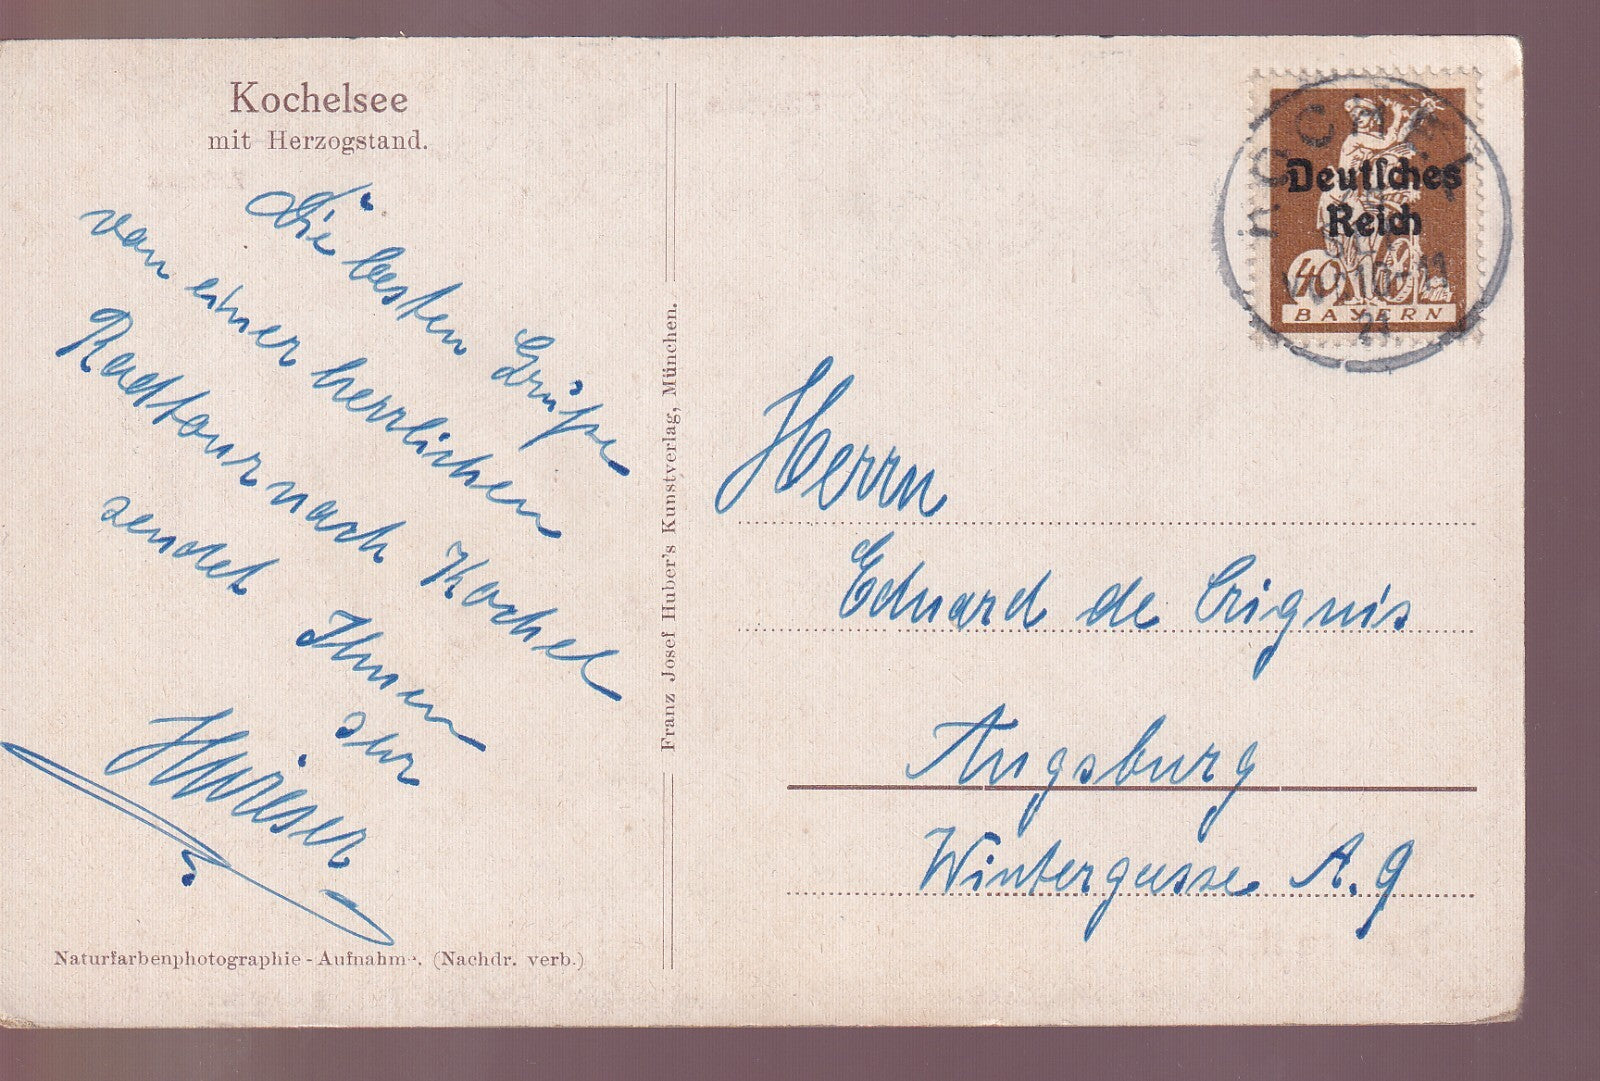 Kochelsee
mit Herzogstand.
Die besten Grüße
von einer herrlichen
Radtour nach Kochel
sendet Ihnen
Ihr
Franz Josef Huber's Kunstverlag, München.
Naturfarbenphotographie-Aufnahme. (Nachdr. verb.)
KOCHEL
Deutsches
Reich
40
BAYERN
21
Herrn
Eduard de Crignis
Augsburg
Wintergasse A. 9